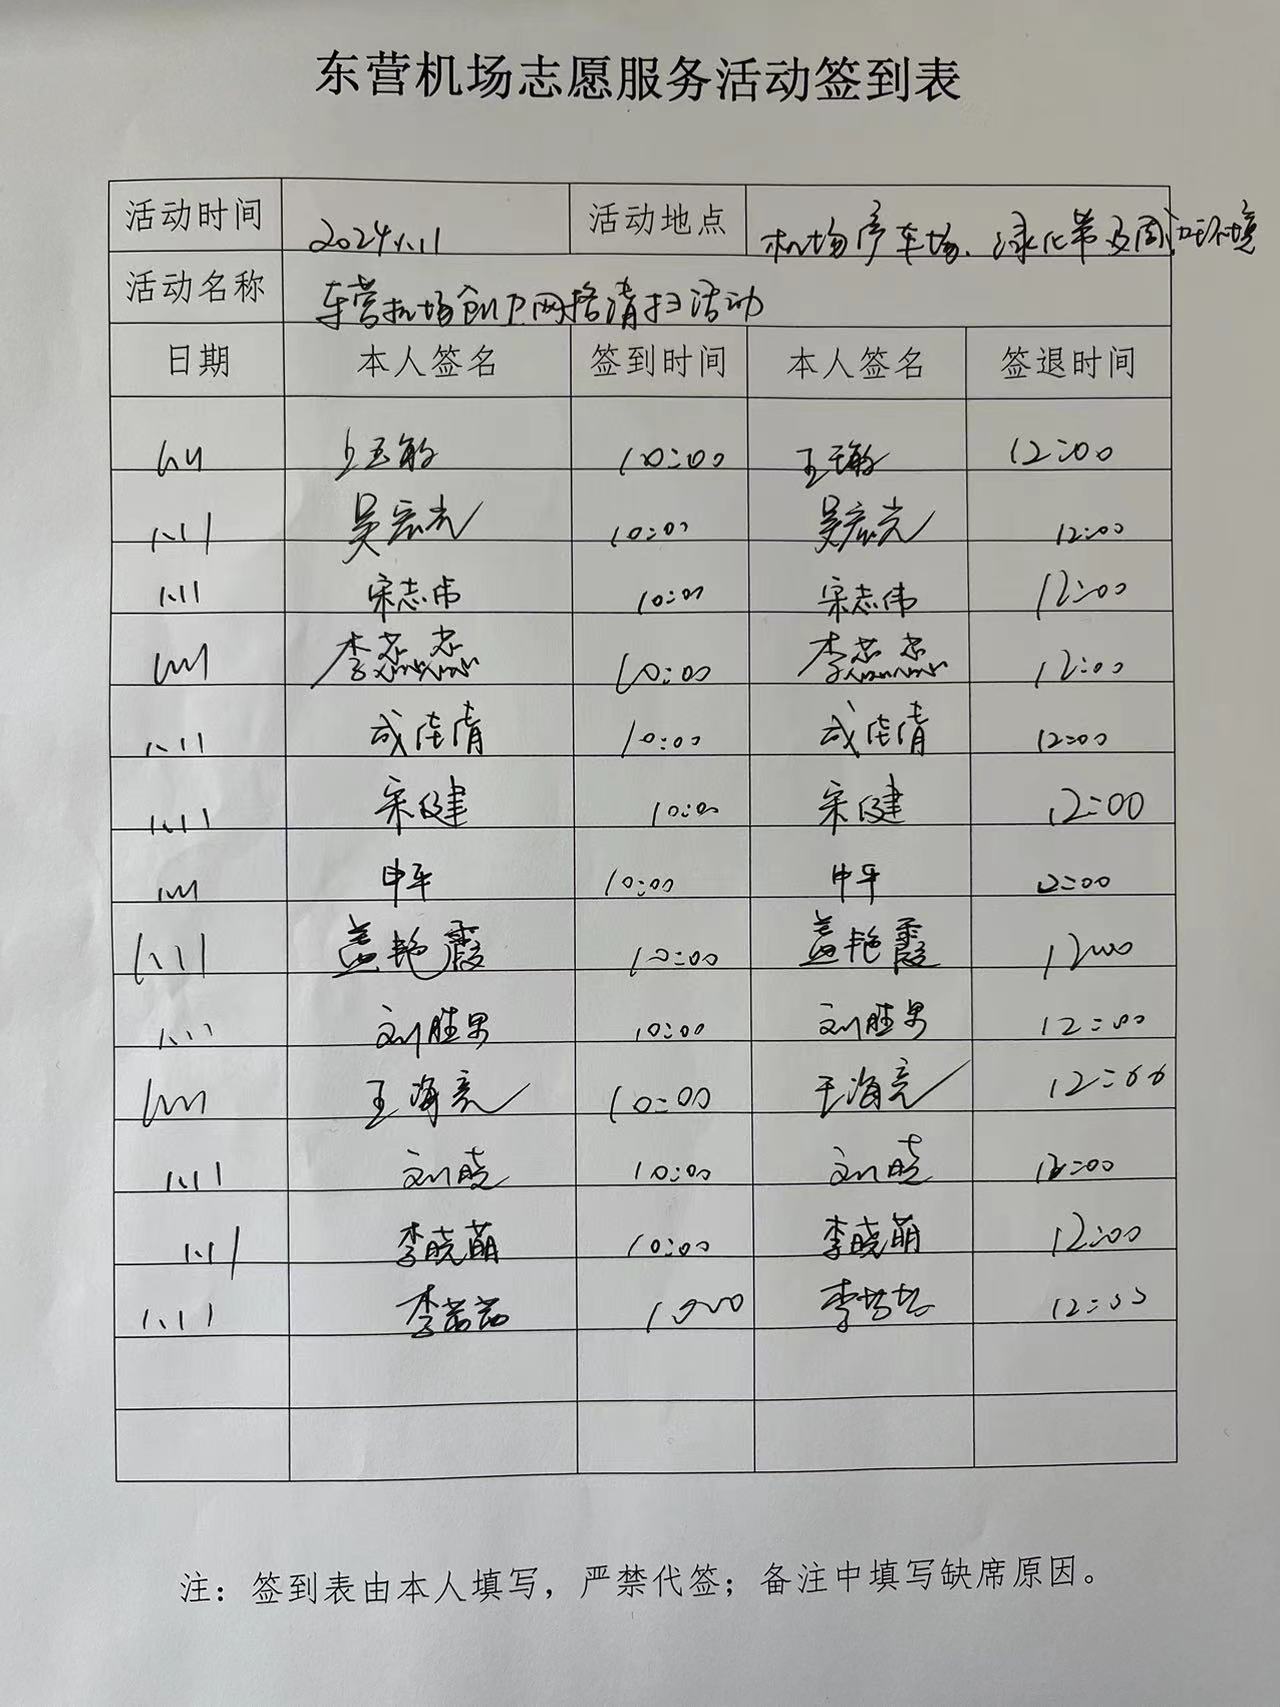 东营机场志愿服务活动签到表
活动时间 2024.1.11 活动地点 机场停车场、绿化带及周边环境
活动名称 东营机场创卫网格清扫活动
日期 本人签名 签到时间 本人签名 签退时间
1.11 王玉敏 10:00 王玉敏 12:00
1.11 吴宏光 10:00 吴宏光 12:00
1.11 宋志伟 10:00 宋志伟 12:00
1.11 李蕊蕊 10:00 李蕊蕊 12:00
1.11 成佳倩 10:00 成佳倩 12:00
1.11 宋健 10:00 宋健 12:00
1.11 申平 10:00 申平 12:00
1.11 盖艳霞 10:00 盖艳霞 12:00
1.11 刘胜男 10:00 刘胜男 12:00
1.11 王海亮 10:00 王海亮 12:00
1.11 刘晓 10:00 刘晓 12:00
1.11 李晓萌 10:00 李晓萌 12:00
1.11 李 10:00 李 12:00
注：签到表由本人填写，严禁代签；备注中填写缺席原因。